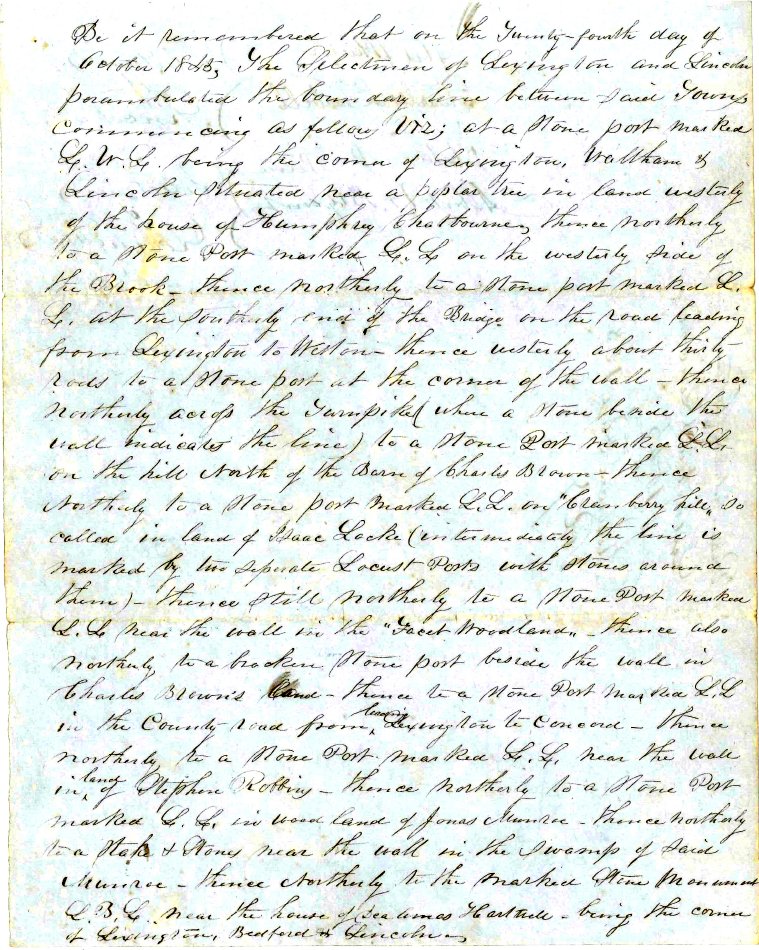 Be it remembered that on the Twenty-fourth day of
October 1845, The Selectmen of Lexington and Lincoln
perambulated the boundary line between said Towns
commencing as follows Viz; at a Stone post marked
L. W. L. being the corner of Lexington, Waltham &
Lincoln situated near a poplar tree in land westerly
of the house of Humphrey Chatbourne, thence northerly
to a Stone Post marked L. L on the westerly side of
the Brook - thence northerly to a stone post marked L.
L. at the southerly end of the Bridge on the road leading
from Lexington to Weston - thence westerly about thirty
rods to a Stone post at the corner of the wall - thence
Northerly across the Turnpike (where a stone beside the
wall indicates the line) to a Stone Post marked L. L.
on the hill North of the Barn of Charles Brown - thence
Northerly to a Stone post marked L. L. on "Cranberry hill" so
called in land of Isaac Locke (intermediately the line is
marked by two seperate Locust Posts with stones around
them) - thence still northerly to a Stone Post marked
L. L near the wall in the "Facet Woodland" - thence also
northerly to a brocken Stone post beside the wall in
Charles Brown's Land - thence to a Stone Post marked L. L
in the County road from Lexington to Concord - thence
northerly to a Stone Post marked L. L. near the wall
in land of Stephen Robbins - thence northerly to a Stone Post
marked L. L. in wood land of Jonas Munroe - thence northerly
to a Stake & Stones near the wall in the Swamp of said
Munroe - thence Northerly to the marked Stone Monument
L. B. L. near the house of - being the corner
of Lexington, Bedford & Lincoln -